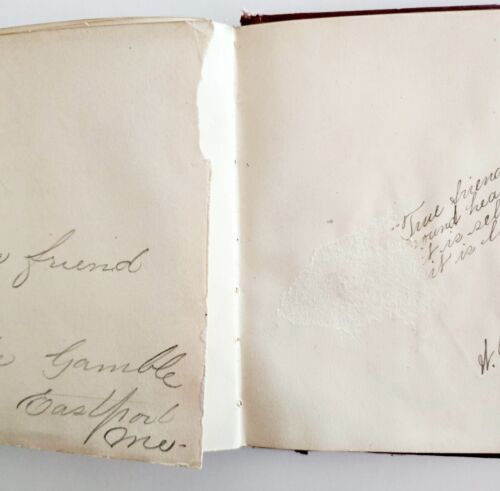 friend
Gamble
Eastport
Me-
"True friend
sound hea
it is se
it is l